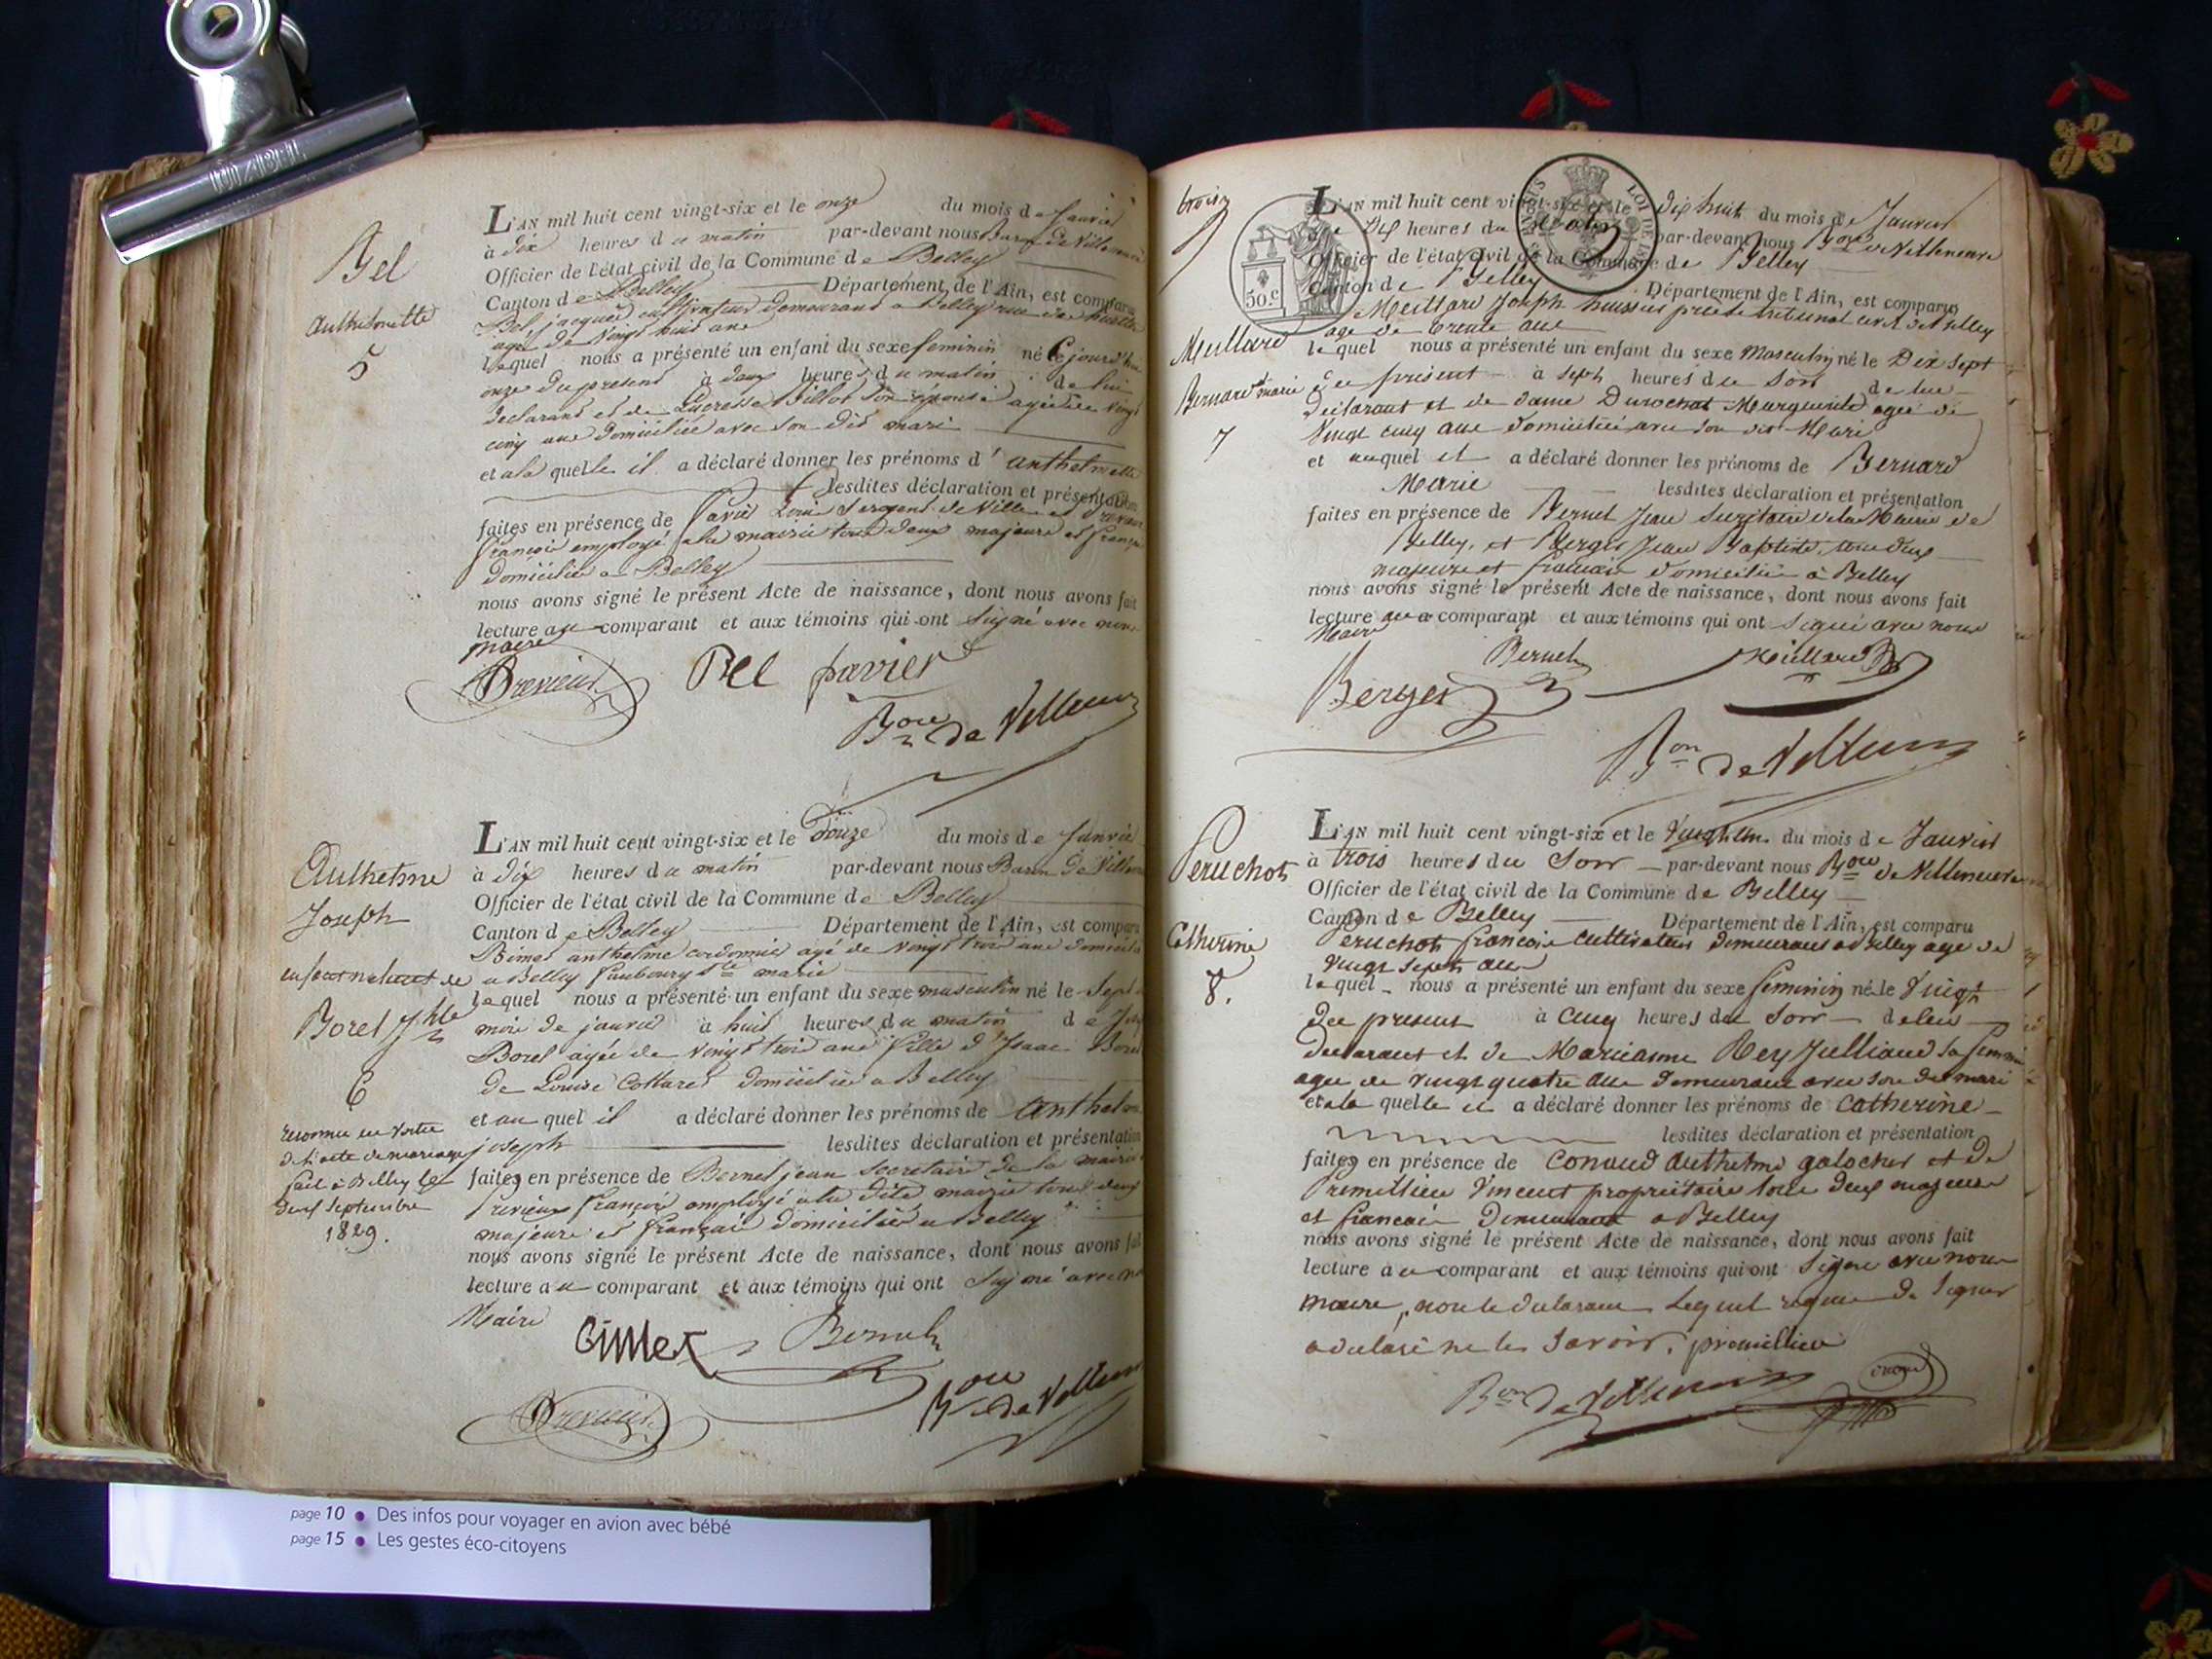 Bel
Anthelmette
5
L'AN mil huit cent vingt-six et le onze du mois de Janvier
à dix heures du matin par-devant nous Baron de Villeneuve
Officier de l'état civil de la Commune de Belley
Canton de Belley Département de l'Ain, est comparu
Bel jacques cultivateur demeurant a Belley rue
age de vingt huit ans
lequel nous a présenté un enfant du sexe feminin né Cejourd'hui
onze du present à deux heures du matin de lui
declarant et de Lucresse Billot son épouse agée de vingt
cinq ans domiciliée avec son dit mari
et a la quelle il a déclaré donner les prénoms d'Anthelmette
lesdites déclaration et présentation
faites en présence de Pavier Louis Sergent de Ville et Previeux
françois employé a la mairie tous deux majeurs et français
domiciliés a Belley
nous avons signé le présent Acte de naissance, dont nous avons fait
lecture au comparant et aux témoins qui ont signé avec nous
maire
Previeux Bel pavier
Bon de Villeneuve
Anthelme
Joseph
enfant naturel de
Borel
6
reconnu en vertu
de l'acte de mariage
fait à Belley le
deux Septembre
1829.
L'AN mil huit cent vingt-six et le douze du mois de Janvier
à dix heures du matin par-devant nous Baron de Villeneuve
Officier de l'état civil de la Commune de Belley
Canton de Belley Département de l'Ain, est comparu
anthelme cordonnier agé de vingt trois ans domicilié
a Belley faubourg Ste marie
lequel nous a présenté un enfant du sexe masculin né le Sept
mois de janvier à huit heures du matin de
Borel agée de vingt trois ans fille d'Isaac Borel
de Louise domiciliée a Belley
et au quel il a déclaré donner les prénoms de Anthelme
joseph lesdites déclaration et présentation
faites en présence de Bernet jean Secretaire de la mairie
Previeux françois employé a la dite mairie tous deux
majeurs et français domiciliés a Belley
nous avons signé le présent Acte de naissance, dont nous avons fait
lecture au comparant et aux témoins qui ont signé avec nous
Maire
Bernet
Previeux Bon de Villeneuve
trois
50.c
LOI DE
Meillard
Bernard marie
7
L'AN mil huit cent vingt-six et le dix huit du mois de Janvier
à Dix heures du matin par-devant nous Bon de Villeneuve
Officier de l'état civil de la Commune de Belley
Canton de Belley Département de l'Ain, est comparu
Meillard Joseph huissier près le tribunal civil de Belley
age de trente ans
lequel nous a présenté un enfant du sexe Masculin né le Dix sept
du présent à sept heures du soir de lui
déclarant et de dame Durochat Marguerite agée de
Vingt cinq ans domiciliée avec son dit Mari
et auquel il a déclaré donner les prénoms de Bernard
Marie lesdites déclaration et présentation
faites en présence de Bernet Jean Secrétaire de la Mairie de
Belley, et Berger Jean Baptiste, tous deux
majeurs et français domiciliés à Belley
nous avons signé le présent Acte de naissance, dont nous avons fait
lecture au comparant et aux témoins qui ont signé avec nous
Maire
Bernet Meillard
Berger
Bon de Villeneuve
Peruchot
Catherine
8.
L'AN mil huit cent vingt-six et le vingt un du mois de Janvier
à trois heures du Soir par-devant nous Bon de Villeneuve
Officier de l'état civil de la Commune de Belley
Canton de Belley Département de l'Ain, est comparu
Peruchot françois Cultivateur demeurant a Belley age de
vingt sept ans
lequel nous a présenté un enfant du sexe feminin né le Vingt
du présent à Cinq heures du Soir de lui
declarant et de Marieanne Rey Julliand sa femme
agée de vingt quatre ans demeurant avec son dit mari
et a la quelle il a déclaré donner les prénoms de Catherine
lesdites déclaration et présentation
faites en présence de Conaud Anthelme galocher et de
Premillieu Vincent propriétaire tous deux majeurs
et français Demeurant a Belley
nous avons signé le présent Acte de naissance, dont nous avons fait
lecture au comparant et aux témoins qui ont Signé avec nous
maire, non le declarant Lequel requis de Signer
a declaré ne le savoir. premillieu
Bon de Villeneuve
page 10 ● Des infos pour voyager en avion avec bébé
page 15 ● Les gestes éco-citoyens